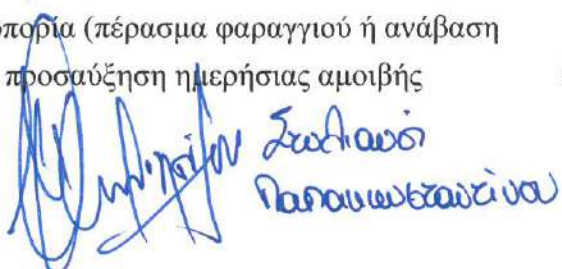 οπορία (πέρασμα φαραγγιού ή ανάβαση
προσαύξηση ημερήσιας αμοιβής
Στυλιανός
Παπακωνσταντίνου